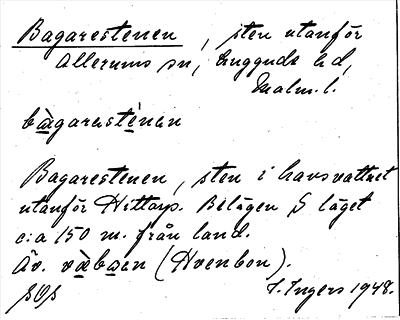 Bagarestenen, sten utanför
Allerums sn, Luggude hd,
Malm. l.
bàgaresténen
Bagarestenen, sten i havsvattnet
utanför Hittarp. Belägen S läget
c:a 150 m. från land.
Äv. (Hvenbon).
I. Ingers 1948.